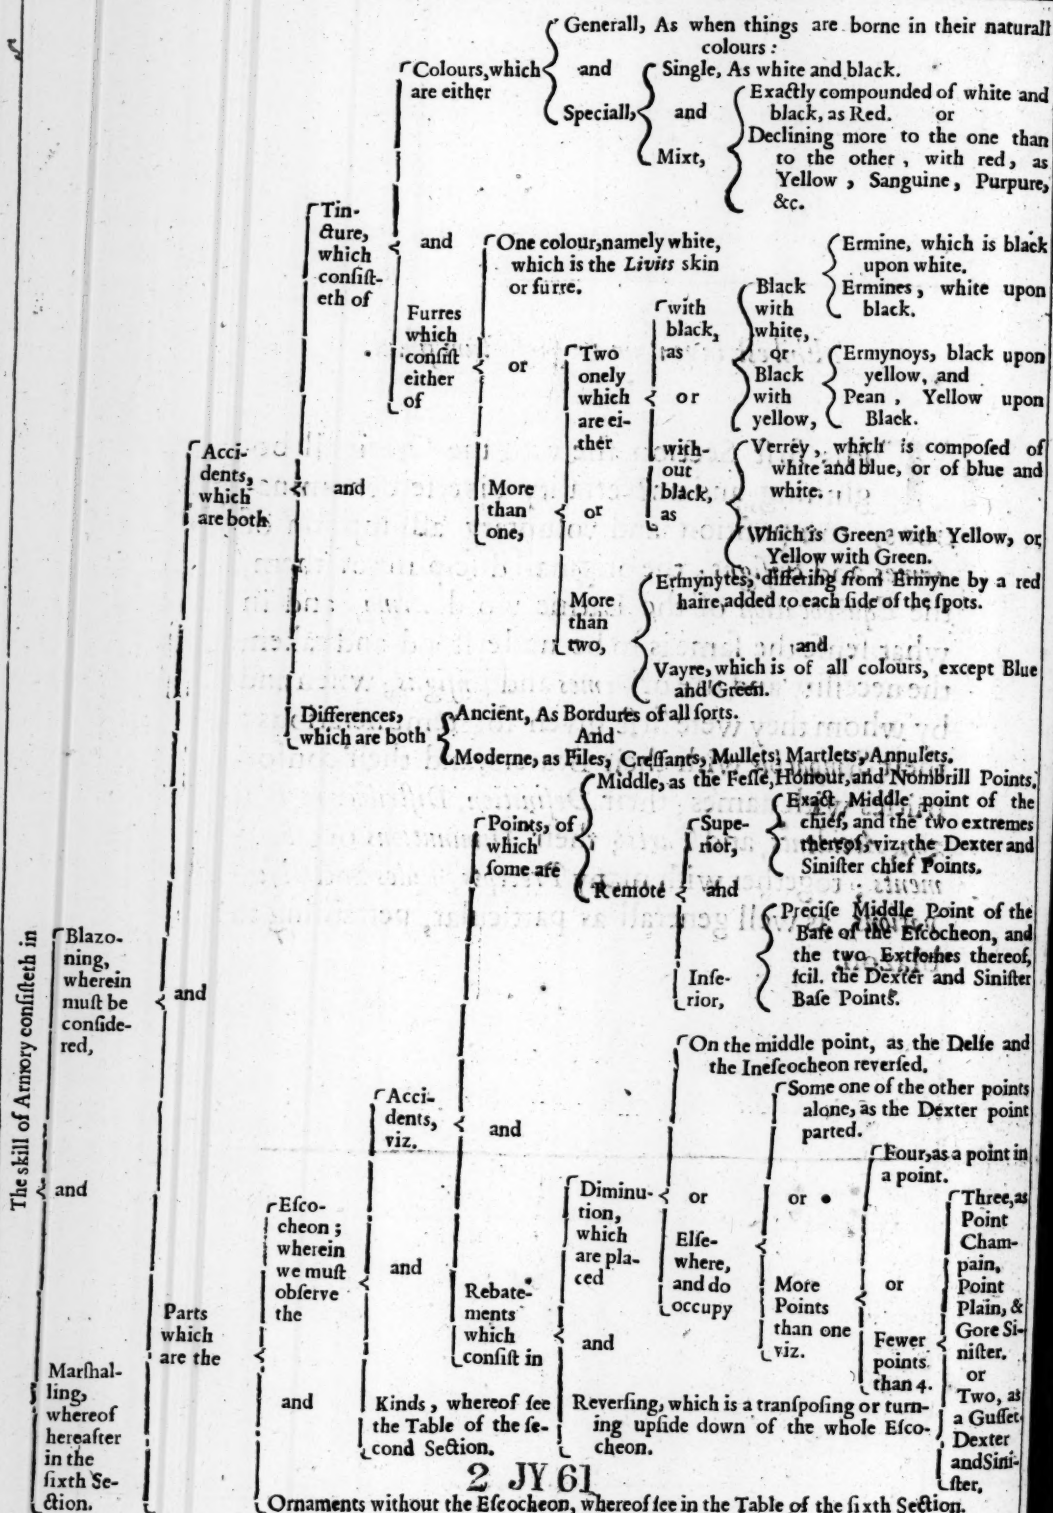 The skill of Armory consisteth in
Blazo-
ning,
wherein
must be
conside-
red,
and
Marshal-
ling,
whereof
hereafter
in the
sixth Se-
ction.
Acci-
dents,
which
are both
and
Parts
which
are the
Tin-
cture,
which
consist-
eth of
and
Differences,
which are both
Colours, which
are either
and
Furres
which
consist
either
of
Generall, As when things are borne in their naturall
colours:
and
Speciall,
Single, As white and black.
and
Mixt,
Exactly compounded of white and
black, as Red. or
Declining more to the one than
to the other, with red, as
Yellow, Sanguine, Purpure,
&c.
One colour, namely white,
which is the Livits skin
or furre.
or
More
than
one,
Two
onely
which
are ei-
ther
or
More
than
two,
with
black,
as
or
with-
out
black,
as
Black
with
white,
or
Black
with
yellow,
Ermine, which is black
upon white.
Ermines, white upon
black.
Ermynoys, black upon
yellow, and
Pean, Yellow upon
Black.
Verrey, which is composed of
white and blue, or of blue and
white.
Which is Green with Yellow, or
Yellow with Green.
Ermynytes, differing from Ermyne by a red
haire, added to each side of the spots.
and
Vayre, which is of all colours, except Blue
and Green.
Ancient, As Bordures of all sorts.
And
Moderne, as Files, Cressants, Mullets, Martlets, Annulets.
Esco-
cheon;
wherein
we must
observe
the
and
Ornaments without the Escocheon, whereof see in the Table of the sixth Section.
Acci-
dents,
viz.
and
Kinds, whereof see
the Table of the se-
cond Section.
Points, of
which
some are
and
Rebate-
ments
which
consist in
Middle, as the Fesse, Honour, and Nombrill Points.
Remote
Supe-
rior,
and
Infe-
rior,
Exact Middle point of the
chief, and the two extremes
thereof, viz. the Dexter and
Sinister chief Points.
Precise Middle Point of the
Base of the Escocheon, and
the two Extremes thereof,
scil. the Dexter and Sinister
Base Points.
Diminu-
tion,
which
are pla-
ced
and
Reversing, which is a transposing or turn-
ing upside down of the whole Esco-
cheon.
On the middle point, as the Delfe and
the Inescocheon reversed.
or
Else-
where,
and do
occupy
Some one of the other points
alone, as the Dexter point
parted.
or
More
Points
than one
viz.
Four, as a point in
a point.
or
Fewer
points
than 4.
Three, as
Point
Cham-
pain,
Point
Plain, &
Gore Si-
nister.
or
Two, as
a Gusset
Dexter
and Sini-
ster.
2 JY 61